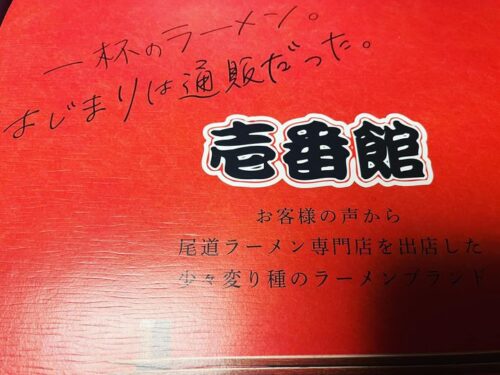 一杯のラーメン。
はじまりは通販だった。
壱番館
お客様の声から
尾道ラーメン専門店を出店した
少々変り種のラーメンブランド